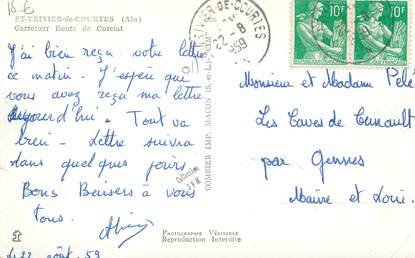 18-6
ST-TRIVIER-DE-COURTES (Ain)
Carrefour Route de Curciat
J'ai bien reçu votre lettre
ce matin - J'espère que
vous avez reçu ma lettre
aujourd'hui - Tout va
bien - Lettre suivra
dans quelques jours
Bons Baisers à vous
tous.
Le 22 août 59
COMBIER IMP. MACON
Collection
PHOTOGRAPHIE VÉRITABLE
Reproduction Interdite
TRIVIER-DE-COURTES
22-8
1959
10F
10F
Monsieur et Madame Pelé
Les Caves de
par Gennes
Maine et Loire